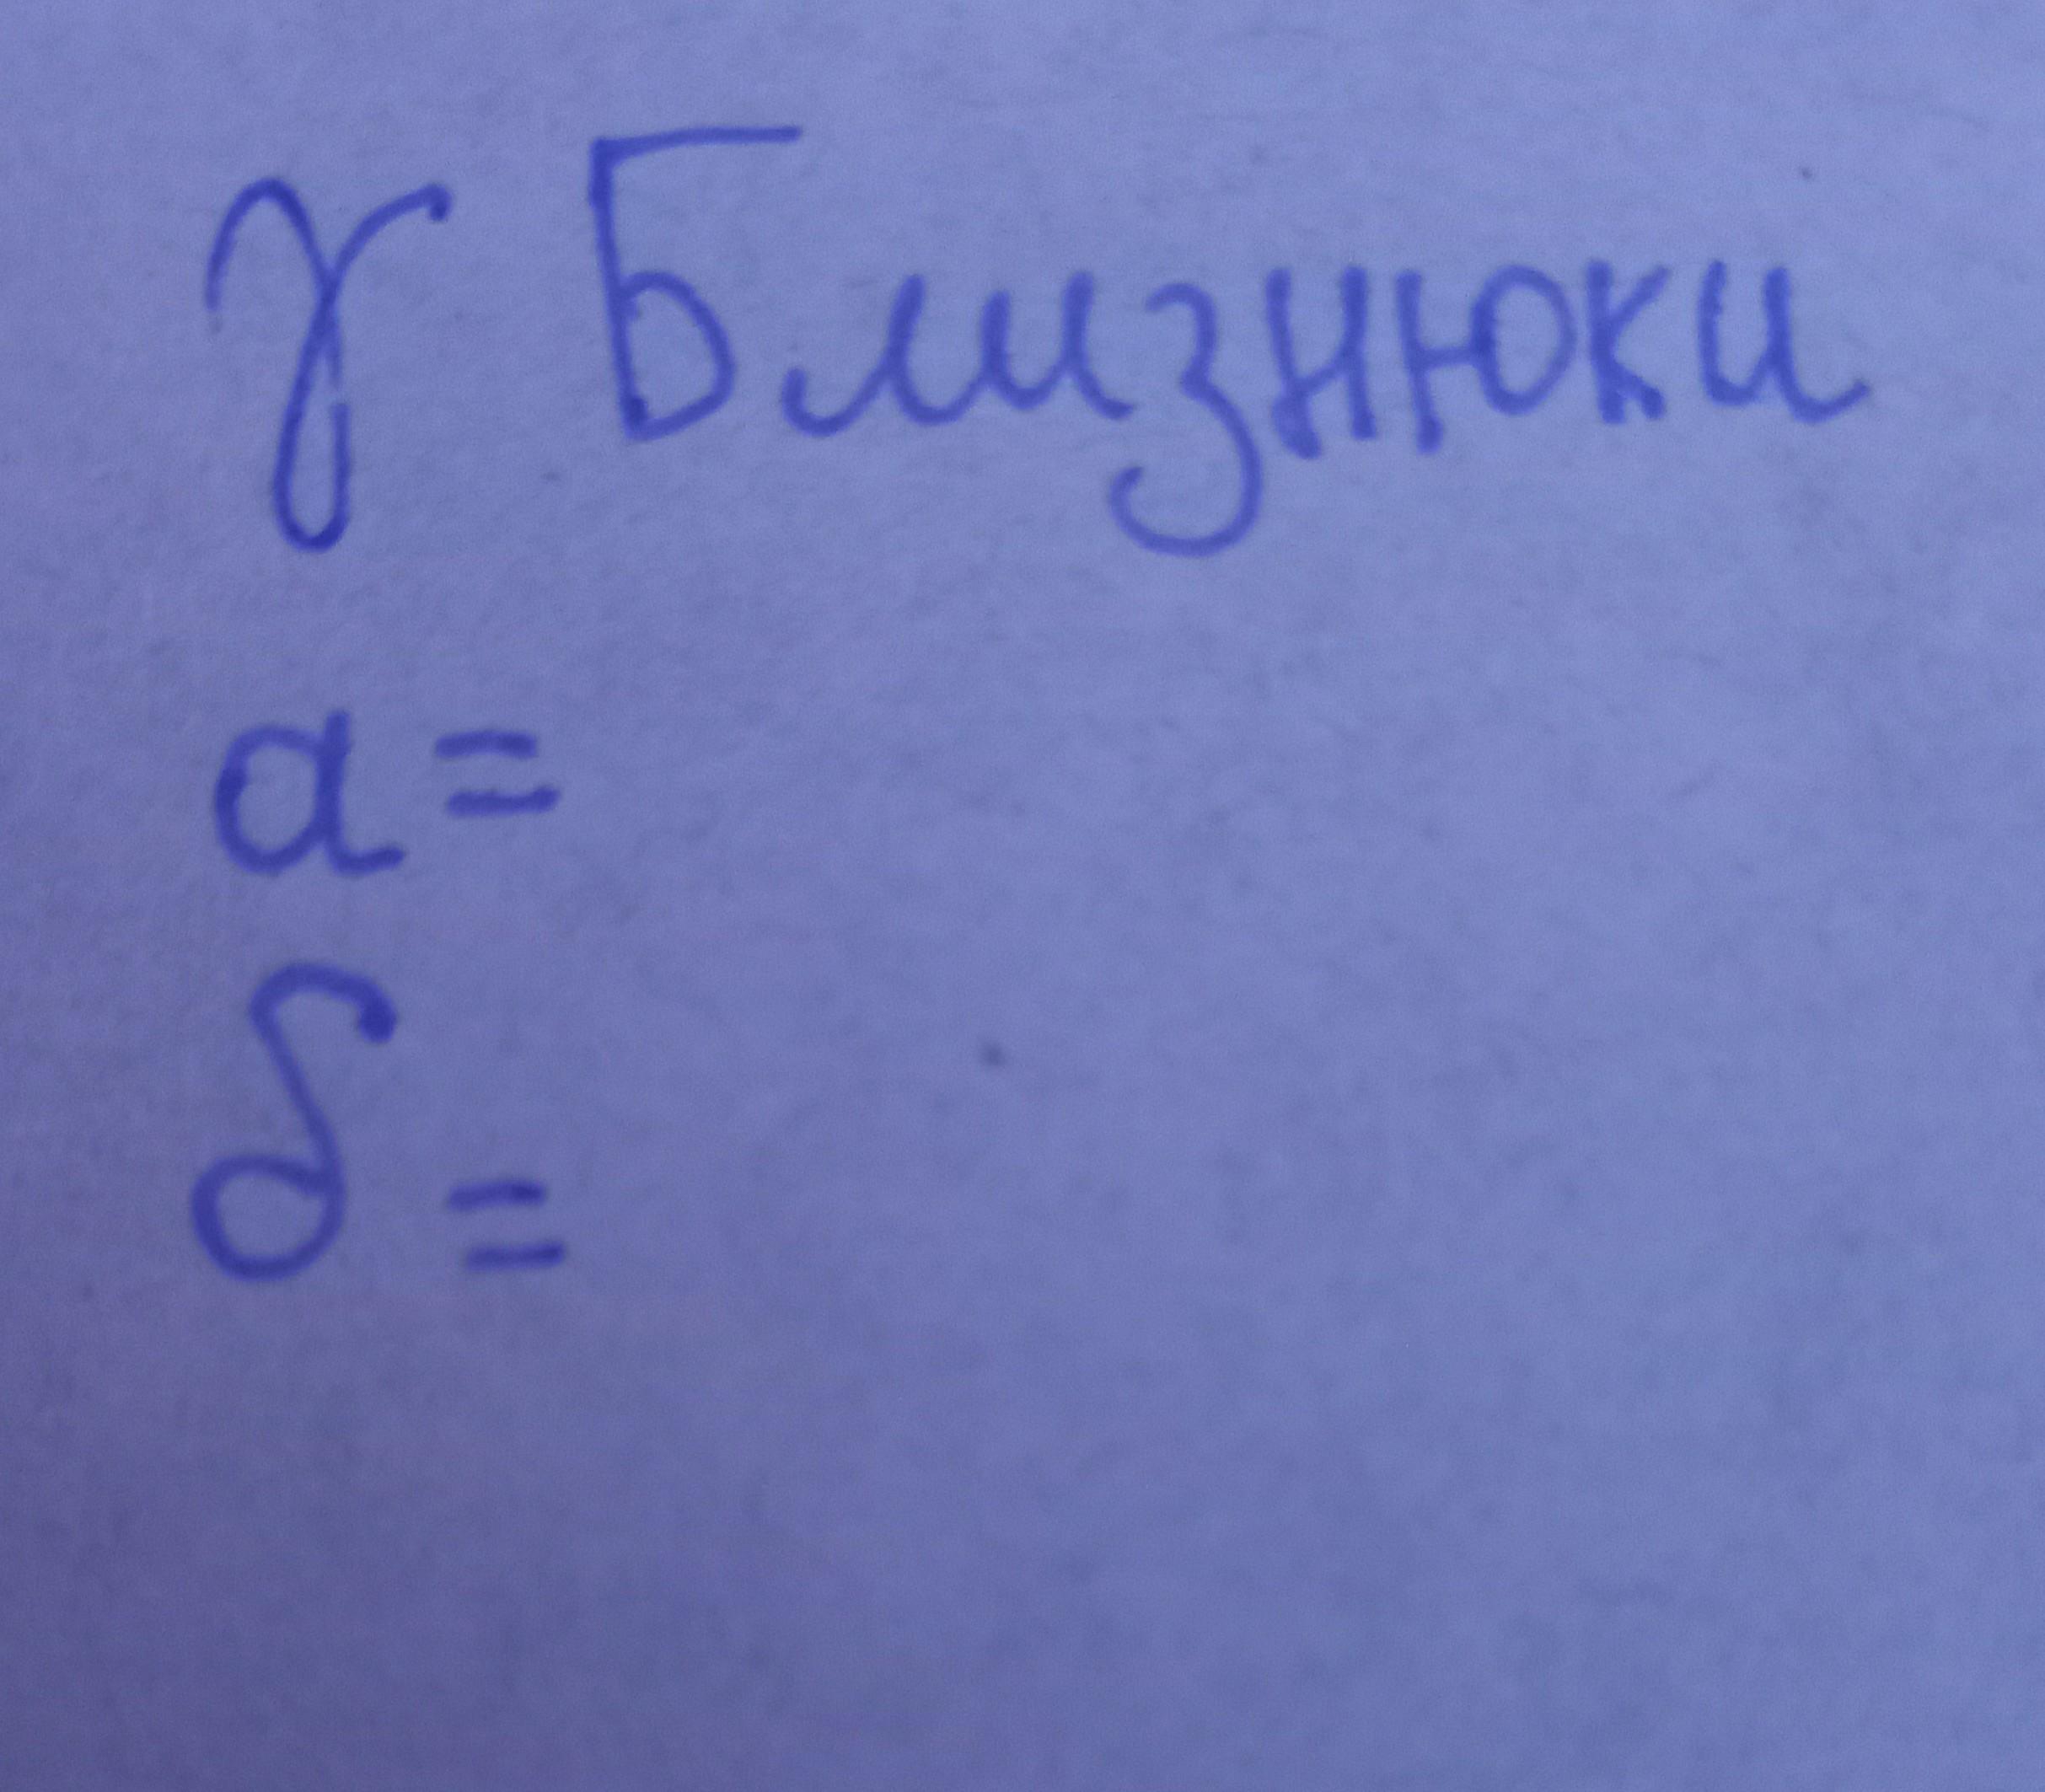 γ Близнюки
a =
δ =